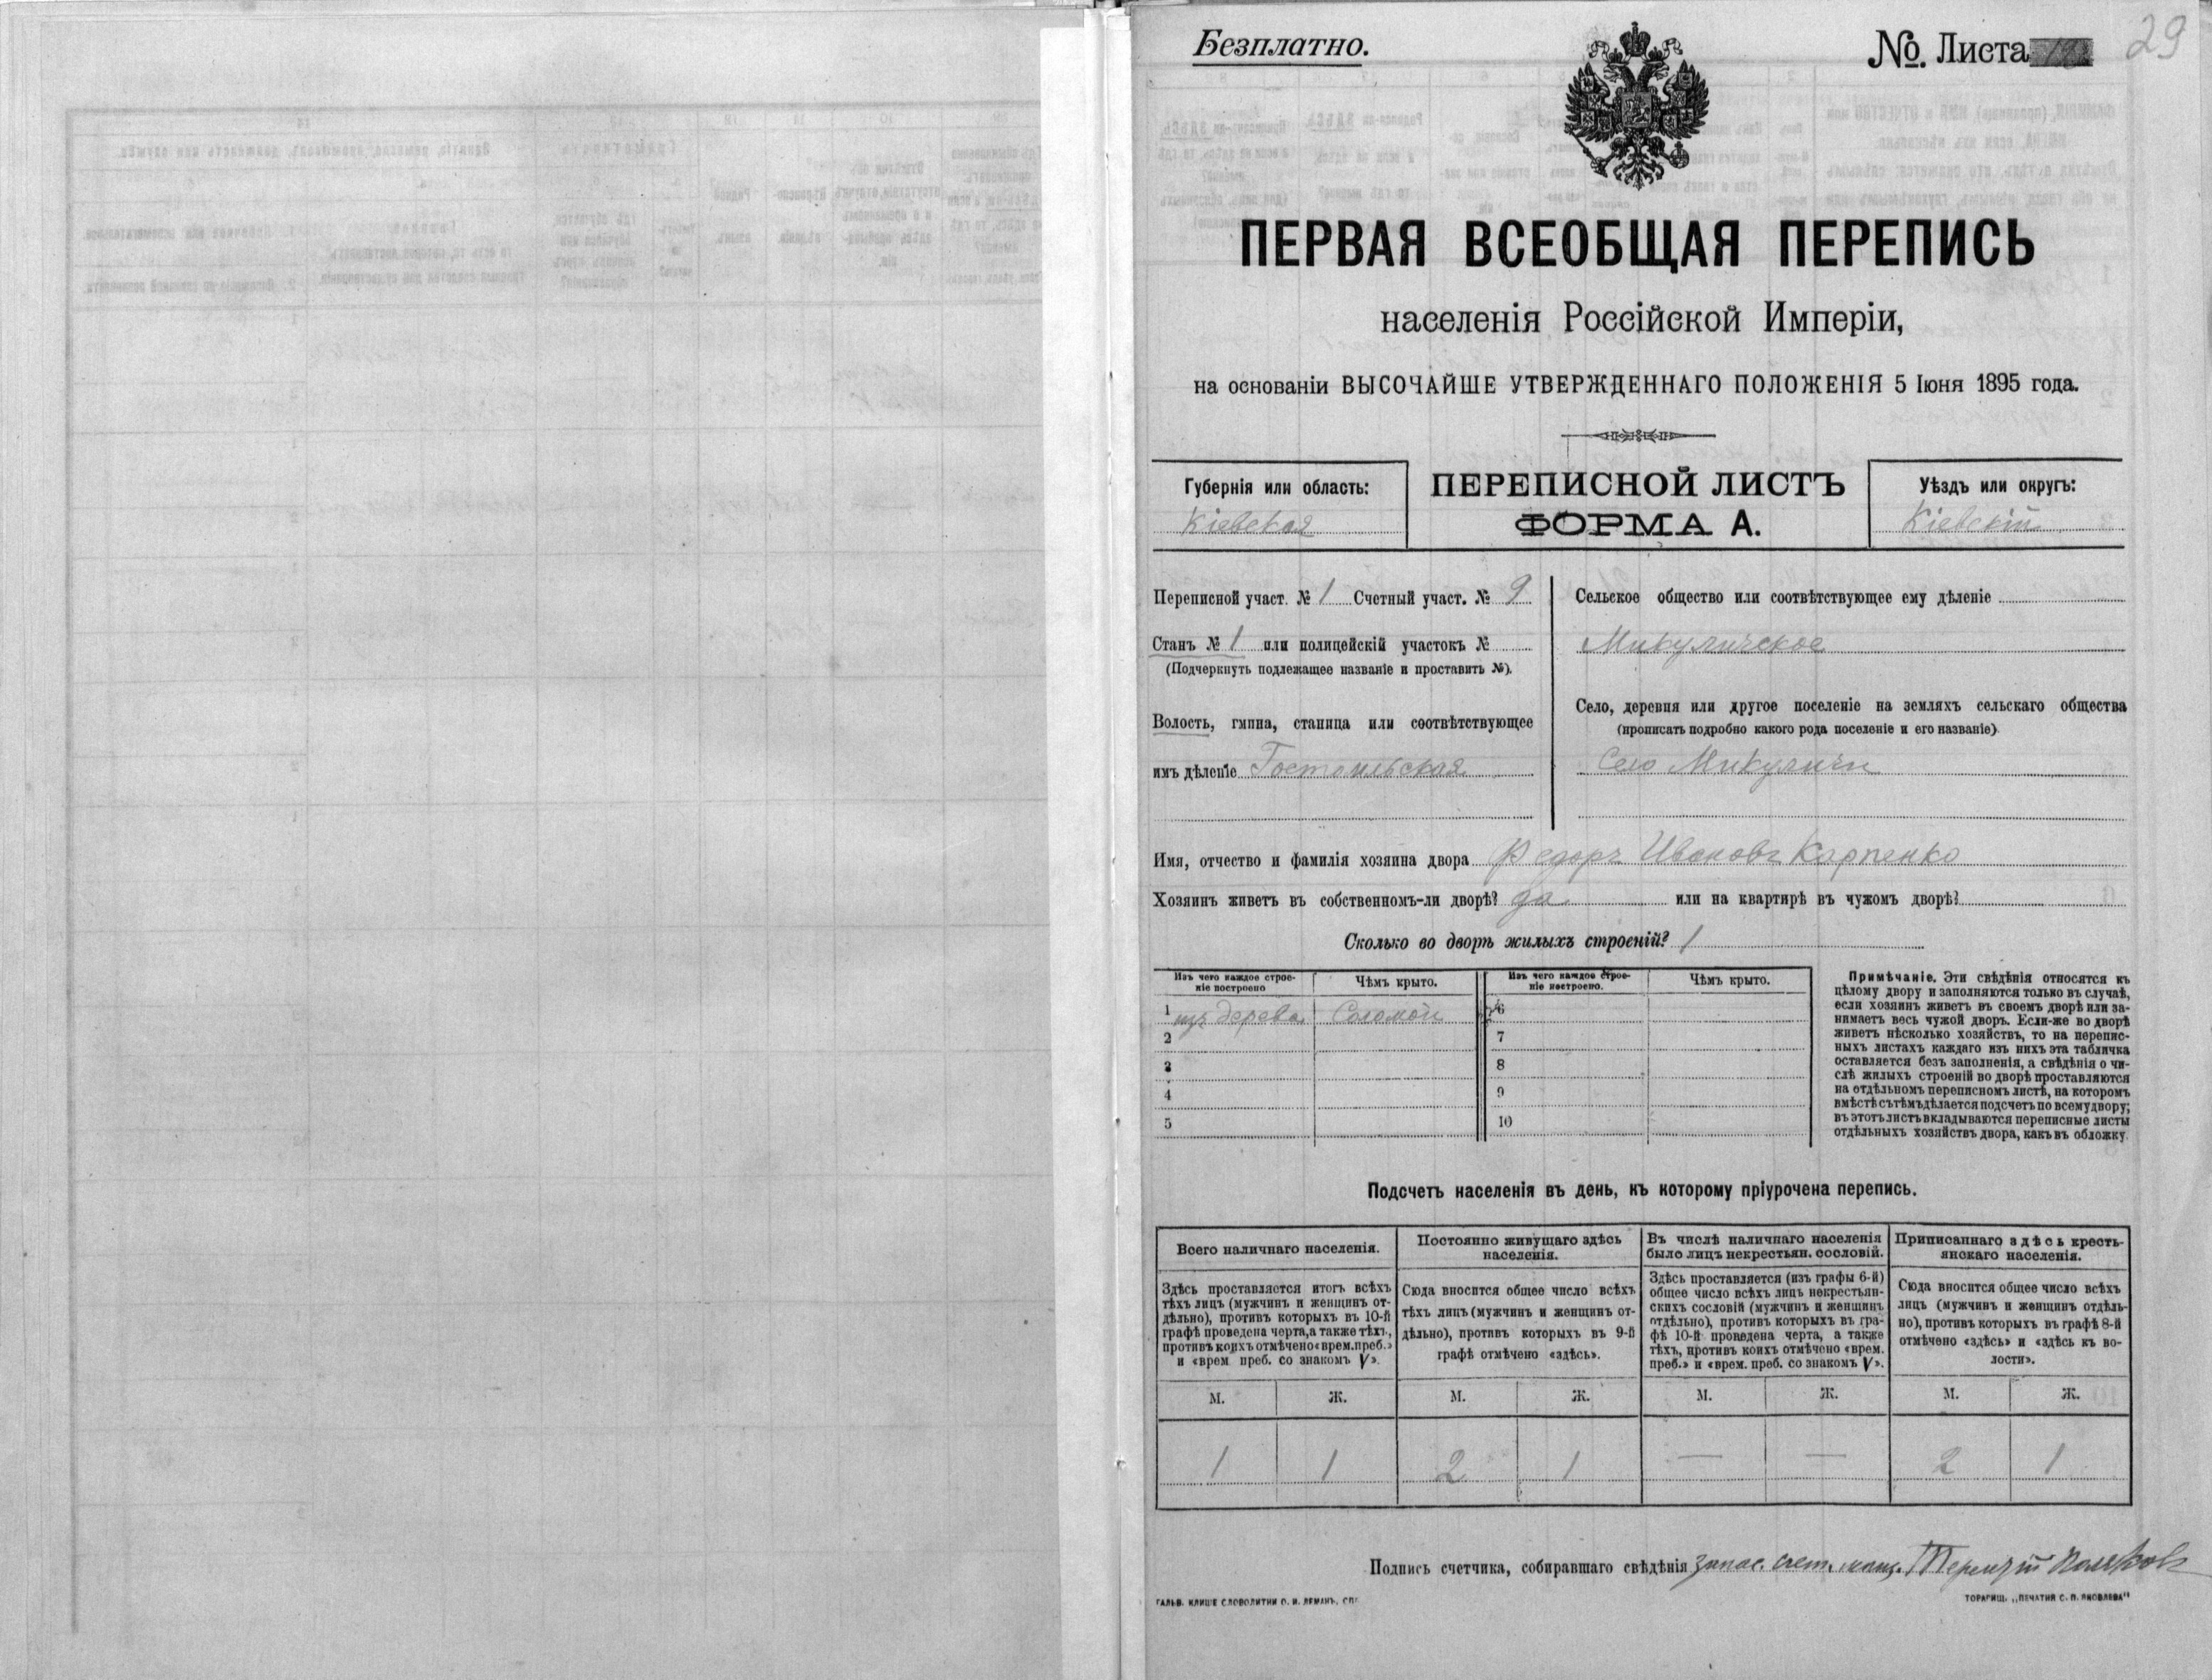 Безплатно.
№ Листа
29
ПЕРВАЯ ВСЕОБЩАЯ ПЕРЕПИСЬ
населенія Россійской Имперіи,
на основаніи ВЫСОЧАЙШЕ УТВЕРЖДЕННАГО ПОЛОЖЕНІЯ 5 Іюня 1895 года.
Губернія или область:
Кіевская
ПЕРЕПИСНОЙ ЛИСТЪ
ФОРМА А.
Уѣздъ или округъ:
Кіевскій
Переписной участ. № 1 Счетный участ. № 9
Станъ № 1 или полицейскій участокъ №
(Подчеркнуть подлежащее названіе и проставить №).
Волость, гмина, станица или соотвѣтствующее
имъ дѣленіе Гостомльская
Сельское общество или соотвѣтствующее ему дѣленіе
Микуличское
Село, деревня или другое поселеніе на земляхъ сельскаго общества
(прописать подробно какого рода поселеніе и его названіе)
Село Микуличи
Имя, отчество и фамилія хозяина двора Федоръ Ивановъ Карпенко
Хозяинъ живетъ въ собственномъ-ли дворѣ? да или на квартирѣ въ чужомъ дворѣ?
Сколько во дворѣ жилыхъ строеній? 1
Изъ чего каждое строе-
ніе построено
Чѣмъ крыто.
Изъ чего каждое строе-
ніе построено.
Чѣмъ крыто.
1 изъ дерева Соломой 6
2 7
3 8
4 9
5 10
Примѣчаніе. Эти свѣдѣнія относятся къ
цѣлому двору и заполняются только въ случаѣ,
если хозяинъ живетъ въ своемъ дворѣ или за-
нимаетъ весь чужой дворъ. Если-же во дворѣ
живетъ нѣсколько хозяйствъ, то на перепис-
ныхъ листахъ каждаго изъ нихъ эта табличка
оставляется безъ заполненія, а свѣдѣнія о чи-
слѣ жилыхъ строеній во дворѣ проставляются
на отдѣльномъ переписномъ листѣ, на которомъ
вмѣстѣ съ тѣмъ дѣлается подсчетъ по всему двору;
въ этотъ листъ вкладываются переписные листы
отдѣльныхъ хозяйствъ двора, какъ въ обложку.
Подсчетъ населенія въ день, къ которому пріурочена перепись.
Всего наличнаго населенія.
Здѣсь проставляется итогъ всѣхъ
тѣхъ лицъ (мужчинъ и женщинъ от-
дѣльно), противъ которыхъ въ 10-й
графѣ проведена черта, а также тѣхъ,
противъ коихъ отмѣчено «врем. преб.»
и «врем преб. со знакомъ V».
Постоянно живущаго здѣсь
населенія.
Сюда вносится общее число всѣхъ
тѣхъ лицъ (мужчинъ и женщинъ от-
дѣльно), противъ которыхъ въ 9-й
графѣ отмѣчено «здѣсь».
Въ числѣ наличнаго населенія
было лицъ некрестьян. сословій.
Здѣсь проставляется (изъ графы 6-й)
общее число всѣхъ лицъ некрестьян-
скихъ сословій (мужчинъ и женщинъ
отдѣльно), противъ которыхъ въ гра-
фѣ 10-й проведена черта, а также
тѣхъ, противъ коихъ отмѣчено «врем.
преб.» и «врем. преб. со знакомъ V».
Приписаннаго здѣсь кресть-
янскаго населенія.
Сюда вносится общее число всѣхъ
лицъ (мужчинъ и женщинъ отдѣль-
но), противъ которыхъ въ графѣ 8-й
отмѣчено «здѣсь» и «здѣсь къ во-
лости».
М. Ж. М. Ж. М. Ж. М. Ж.
1 1 2 1 — — 2 1
Подпись счетчика, собиравшаго свѣдѣнія запас. счет. Терентій Поляков
ГАЛЬВ. КЛИШЕ СЛОВОЛИТНИ О. И. ЛЕМАНЪ, СПБ
ТОРАГИЩ. „ПЕЧАТНЯ С. П. ЯКОВЛЕВА"